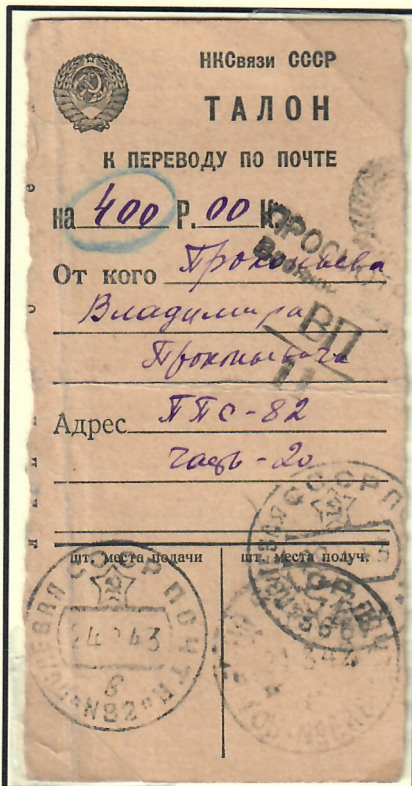 НКСвязи СССР
ТАЛОН
К ПЕРЕВОДУ ПО ПОЧТЕ
на 400 Р. 00 К.
От кого Прокопьева
Владимира
Прокопьевича
ВП
Адрес ППС-82
часть-20
шт. места подачи шт. места получ.
СССР ПОЧТА
ПОЛЕВАЯ
43